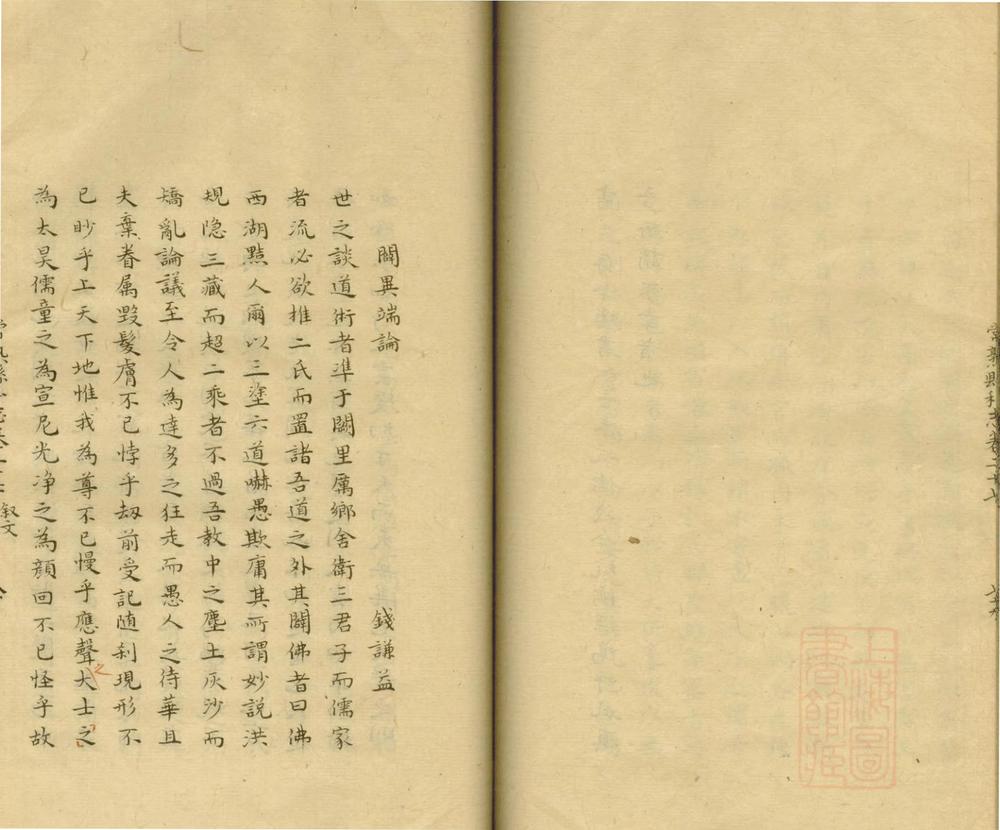 常熟縣私志卷二十七
上海圖書館藏
闢異端論　錢謙益
世之談道術者準于闕里厲鄉舍衛三君子而儒家
者流必欲推二氏而置諸吾道之外其闢佛者曰佛
西湖黠人爾以三塗六道嚇愚欺庸其所謂妙說洪
規隐三藏而超二乘者不過吾教中之塵土灰沙而
矯亂論議至令人為達多之狂走而愚人之待華且
夫棄眷属毀髮膚不已悖乎刼前受記随刹現形不
已眇乎上天下地惟我為尊不已慢乎應聲大士之
為太昊儒童之為宣尼光净之為顔回不已怪乎故
叙文